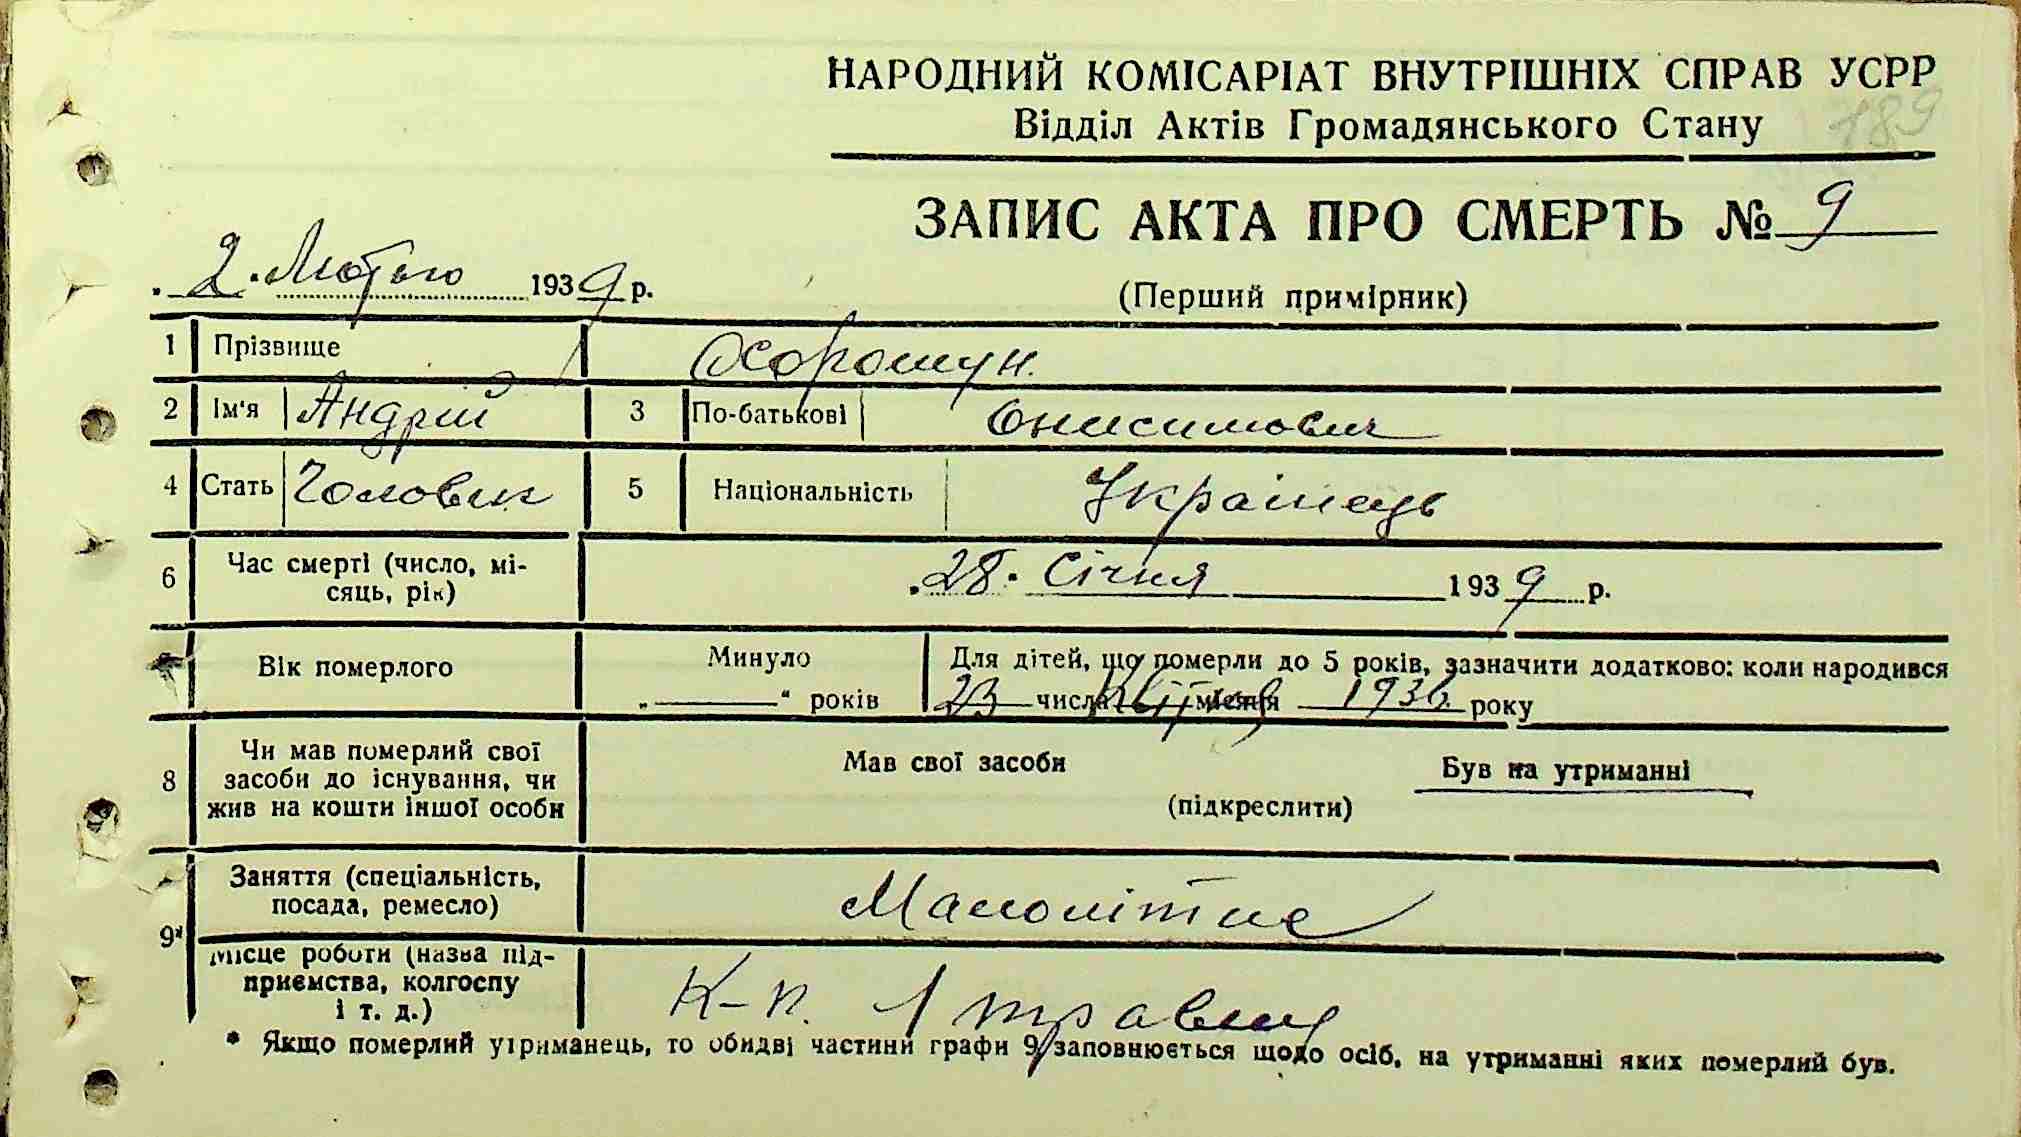 НАРОДНИЙ КОМІСАРІАТ ВНУТРІШНІХ СПРАВ УСРР
Відділ Актів Громадянського Стану
189
ЗАПИС АКТА ПРО СМЕРТЬ № 9
2. Лютого 1939 р.
(Перший примірник)
1 Прізвище
2 Ім'я Андрій 3 По-батькові Онисимович
4 Стать Чоловік 5 Національність Українець
6 Час смерті (число, мі-
сяць, рік)
28. Січня 1939 р.
Вік померлого
Минуло
„ " років
Для дітей, що померли до 5 років, зазначити додатково: коли народився
23 числа місяця 1936 року
8 Чи мав померлий свої
засоби до існування, чи
жив на кошти іншої особи
Мав свої засоби Був на утриманні
(підкреслити)
9*
Заняття (спеціальність,
посада, ремесло)
Малолітнє
Місце роботи (назва під-
приємства, колгоспу
і т. д.)
К-п. 1 травня
* Якщо померлий утриманець, то обидві частини графи 9 заповнюється щодо осіб, на утриманні яких померлий був.